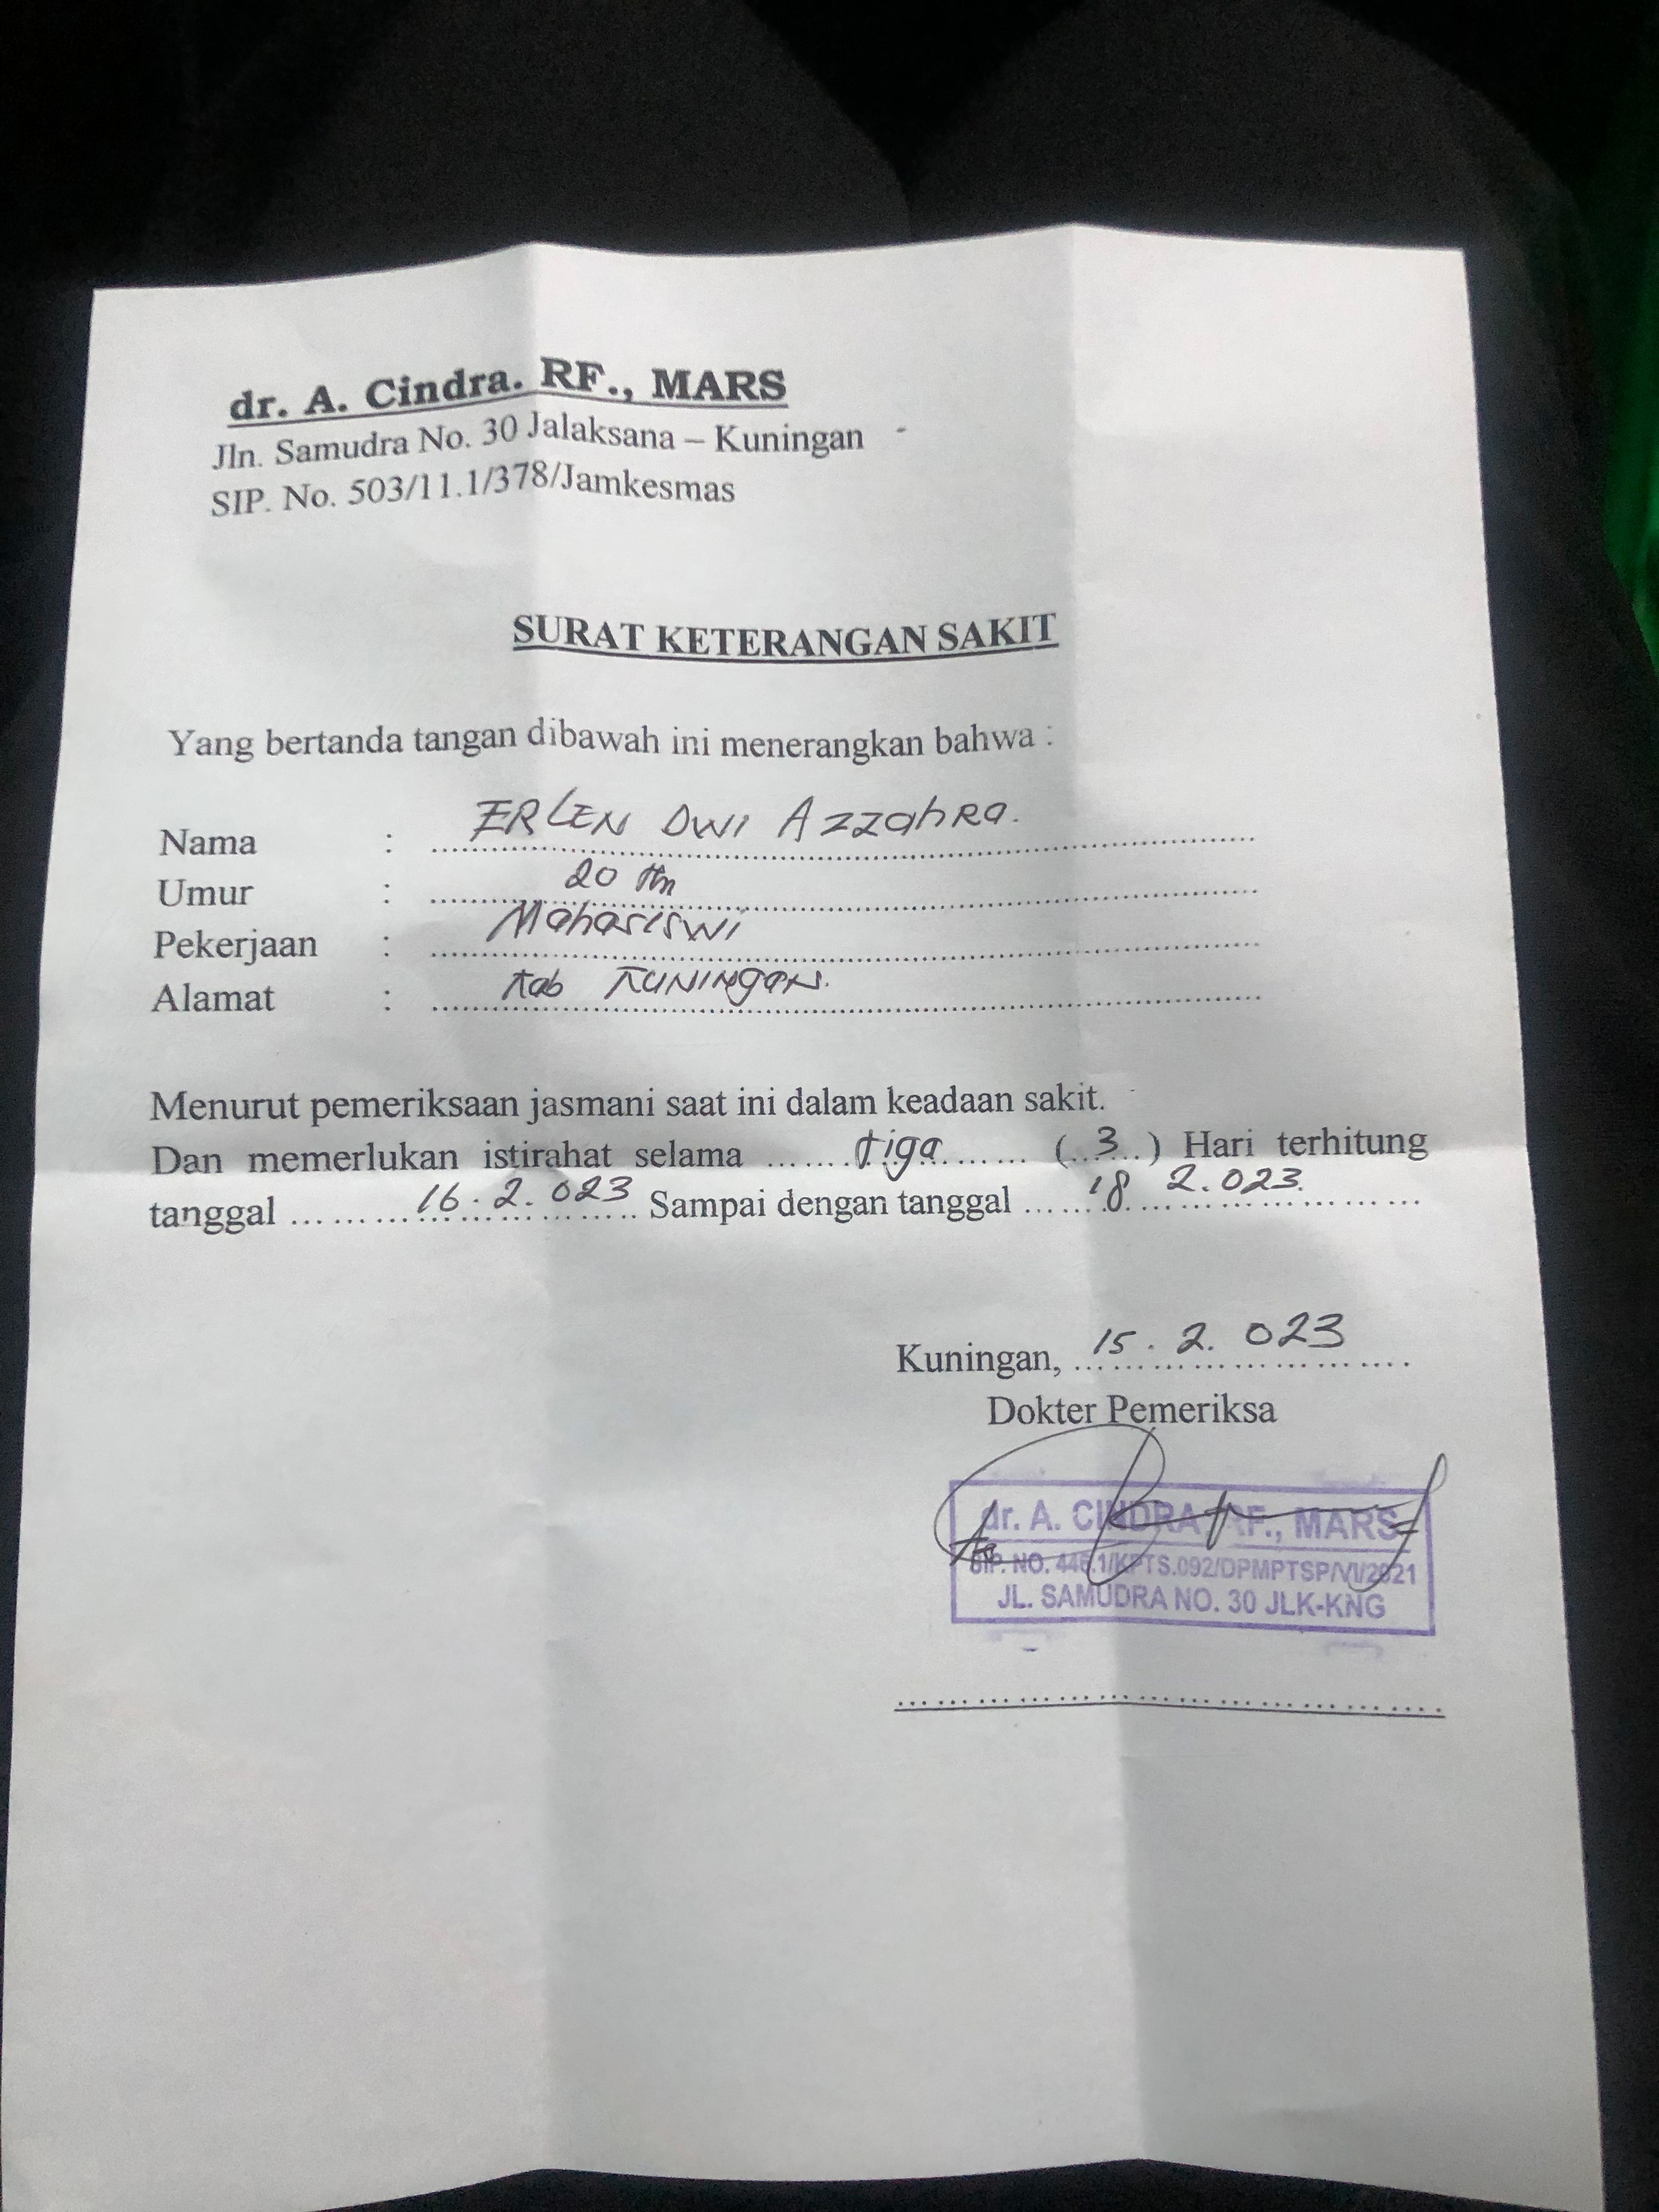 dr. A. Cindra. RF., MARS
Jln. Samudra No. 30 Jalaksana – Kuningan
SIP. No. 503/11.1/378/Jamkesmas
SURAT KETERANGAN SAKIT
Yang bertanda tangan dibawah ini menerangkan bahwa :
Nama : ERLEN DWI AzzahRa.
Umur : 20 thn
Pekerjaan : Mahasiswi
Alamat : Kab KUNINgaN.
Menurut pemeriksaan jasmani saat ini dalam keadaan sakit.
Dan memerlukan istirahat selama ....... tiga ....... (..3..) Hari terhitung
tanggal ......... 16.2.023 ......... Sampai dengan tanggal ...... 18 2.023. .........
Kuningan, 15.2.023
Dokter Pemeriksa
dr. A. CINDRA RF., MARS
SIP. NO. 446.1/KPTS.092/DPMPTSP/VI/2021
JL. SAMUDRA NO. 30 JLK-KNG